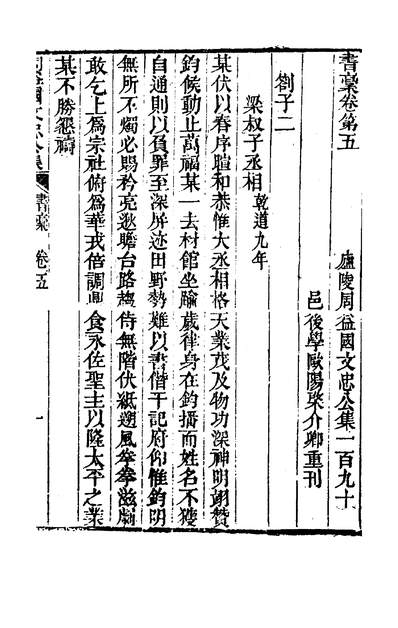 書稾卷第五
廬陵周益國文忠公集一百九十
邑後學歐陽棨介卿重刊
劄子二
梁叔子丞相乾道九年
某伏以春序暄和恭惟大丞相格天業茂及物功深神明翊贊
鈞候動止萬福某一去村館坐踰歲律身在鈞播而姓名不獲
自通則以負罪至深屏迹田野勢難以書偕干記府仰惟鈞明
無所不燭必賜矜亮逖瞻台路趨侍無階伏紙遡風拳拳滋劇
敢乞上爲宗社俯爲華戎倍調鼎食永佐聖主以隆太平之業
某不勝懇禱
周益國文忠公集
書稾 卷五
一